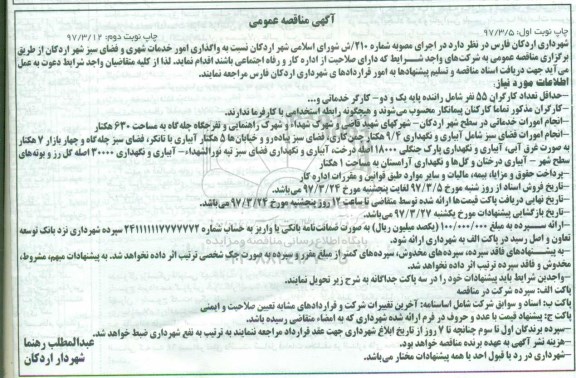 آگهی مناقصه عمومی
چاپ نوبت اول: ۹۷/۳/۵
چاپ نوبت دوم: ۹۷/۳/۱۲
شهرداری اردکان فارس در نظر دارد در اجرای مصوبه شماره ۲۱۰/ش شورای اسلامی شهر اردکان نسبت به واگذاری امور خدمات شهری و فضای سبز شهر اردکان از طریق
برگزاری مناقصه عمومی به شرکت‌های واجد شـــرایط که دارای صلاحیت از اداره کار و رفاه اجتماعی باشند اقدام نماید. لذا از کلیه متقاضیان واجد شرایط دعوت به عمل
می‌آید جهت دریافت اسناد مناقصه و تسلیم پیشنهادها به امور قراردادها ی شهرداری اردکان فارس مراجعه نمایند.
اطلاعات مورد نیاز:
-حداقل تعداد کارگران ۵۵ نفر شامل راننده پایه یک و دو- کارگر خدماتی و...
-کارگران مذکور تماما کارکنان پیمانکار محسوب می‌شوند و هیچگونه رابطه استخدامی با کارفرما ندارند.
-انجام امورات خدماتی در سطح شهر اردکان – شهرکهای شهید قاضی و شهرک شهداء و شهرک راهنمایی و تفرجگاه چله‌گاه به مساحت ۶۳۰ هکتار
-انجام امورات فضای سبز شامل آبیاری و نگهداری ۹/۴ هکتار چمن‌کاری، فضای سبز پیاده‌رو و خیابان‌ها ۵ هکتار آبیاری با تانکر، فضای سبز چله‌گاه و چهار بازار ۷ هکتار
به صورت غرق آبی، آبیاری و نگهداری پارک جنگلی ۱۸۰۰۰ اصله درخت، آبیاری و نگهداری فضای سبز تپه نورالشهداء- آبیاری و نگهداری ۳۰۰۰۰ اصله گل رز و بوته‌های
سطح شهر – آبیاری درختان و گل‌ها و نگهداری آرامستان به مساحت ۱ هکتار
-پرداخت حقوق و مزایا، بیمه، مالیات و سایر موارد طبق قوانین و مقررات اداره کار
-تاریخ فروش اسناد از روز شنبه مورخ ۹۷/۳/۵ لغایت پنجشنبه مورخ ۹۷/۳/۲۴ می‌باشد.
-تاریخ نهایی دریافت پاکت قیمت‌ها ارائه شده توسط متقاضی تا ساعت ۱۲ روز پنجشنبه مورخ ۹۷/۳/۲۴ می‌باشد.
-تاریخ بازگشایی پیشنهادات مورخ یکشنبه ۹۷/۳/۲۷ می‌باشد.
-ارائه ســـپرده به مبلغ ۱۰۰/۰۰۰/۰۰۰ (یکصد میلیون ریال) به صورت ضمانتنامه بانکی یا واریز به حساب شماره ۲۴۱۱۱۱۱۱۷۷۷۷۷۷۲ سپرده شهرداری نزد بانک توسعه
تعاون و اصل رسید در پاکت الف به شهرداری ارائه شود.
-به پیشـــنهادهای فاقد سپرده، سپرده‌های مخدوش، سپرده‌های کمتر از مبلغ مقرر و سپرده به صورت چک شخصی ترتیب اثر داده نخواهد شد. به پیشنهادات مبهم، مشروط،
مخدوش و فاقد سپرده ترتیب اثر داده نخواهد شد.
-واجدین شرایط باید پیشنهادات خود را در سه پاکت جداگانه به شرح زیر تحویل نمایند.
پاکت الف: سپرده شرکت در مناقصه
پاکت ب: اسناد و سوابق شرکت شامل اساسنامه؛ آخرین تغییرات شرکت و قراردادهای مشابه تعیین صلاحیت و ایمنی
پاکت ج: پیشنهاد قیمت با عدد و حروف در فرم ارائه شده شهرداری که به امضاء متقاضی رسیده باشد.
-سپرده برندگان اول تا سوم چنانچه تا ۷ روز از تاریخ ابلاغ شهرداری جهت عقد قرارداد مراجعه ننمایند به ترتیب به نفع شهرداری ضبط خواهد شد.
-هزینه نشر آگهی به عهده برنده مناقصه خواهد بود.
-شهرداری در رد یا قبول احد یا همه پیشنهادات مختار می‌باشد.
عبدالمطلب رهنما
شهردار اردکان